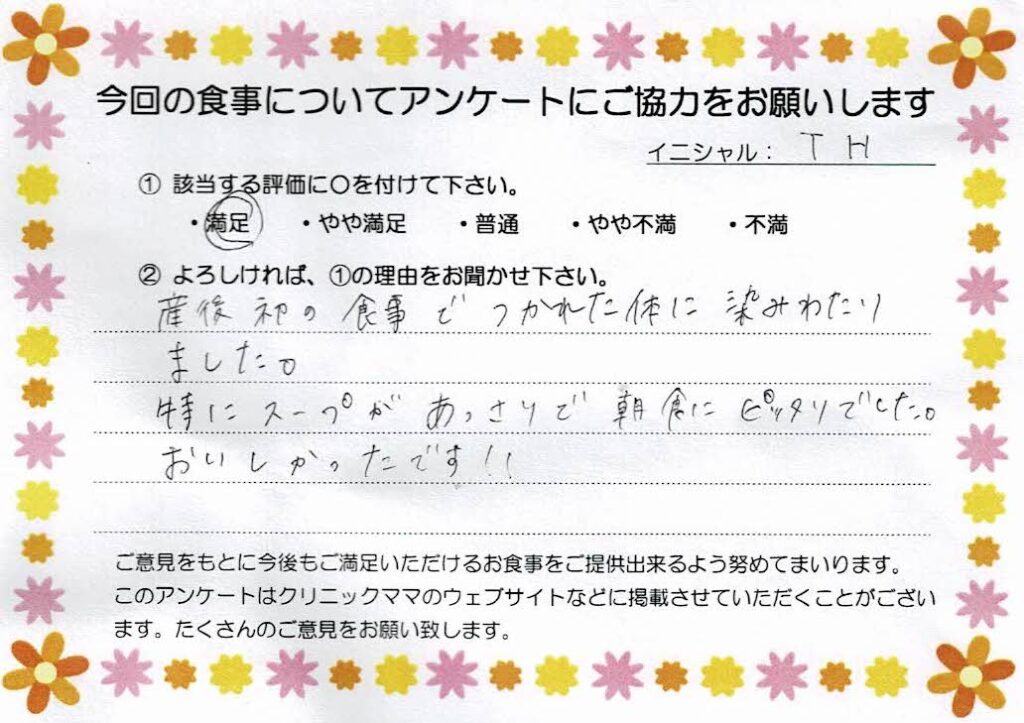 今回の食事についてアンケートにご協力をお願いします
イニシャル： T H
① 該当する評価に〇を付けて下さい。
・満足 ・やや満足 ・普通 ・やや不満 ・不満
② よろしければ、①の理由をお聞かせ下さい。
産後初の食事でつかれた体に染みわたり
ました。
特にスープがあっさりで朝食にピッタリでした。
おいしかったです!!
ご意見をもとに今後もご満足いただけるお食事をご提供出来るよう努めてまいります。
このアンケートはクリニックママのウェブサイトなどに掲載させていただくことがござい
ます。たくさんのご意見をお願い致します。